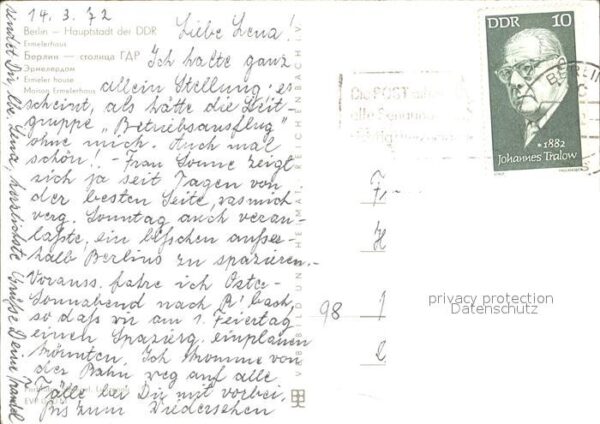 14.3.72
Berlin – Hauptstadt der DDR
Ermelerhaus
Берлин – столица ГДР
Эрмелердом
Ermeler house
Maison Ermelerhaus
Liebe Lena!
Ich halte ganz
allein Stellung; es
scheint, als hätte die Leit-
gruppe „Betriebsausflug"
ohne mich. Auch mal
schön! – Frau Sonne zeigt
sich ja seit Tagen von
der besten Seite, was mich
verg. Sonntag auch veran-
laßte, ein bißchen außer-
halb Berlins zu spazieren. –
Vorauss. fahre ich Oster-
Sonnabend nach R'bach,
so daß wir am 1. Feiertag
einen Spazierg. einplanen
könnten. Ich komme von
der Bahn weg auf alle
Fälle bei Dir mit vorbei.
Bis zum Wiedersehen
sendet Dir, lb. Lena, herzlichste Grüße Deine
VEB BILD UND HEIMAT REICHENBACH I V
DDR 10
*1882
Johannes Tralow
BERLIN
Die POST
98
privacy protection
Datenschutz